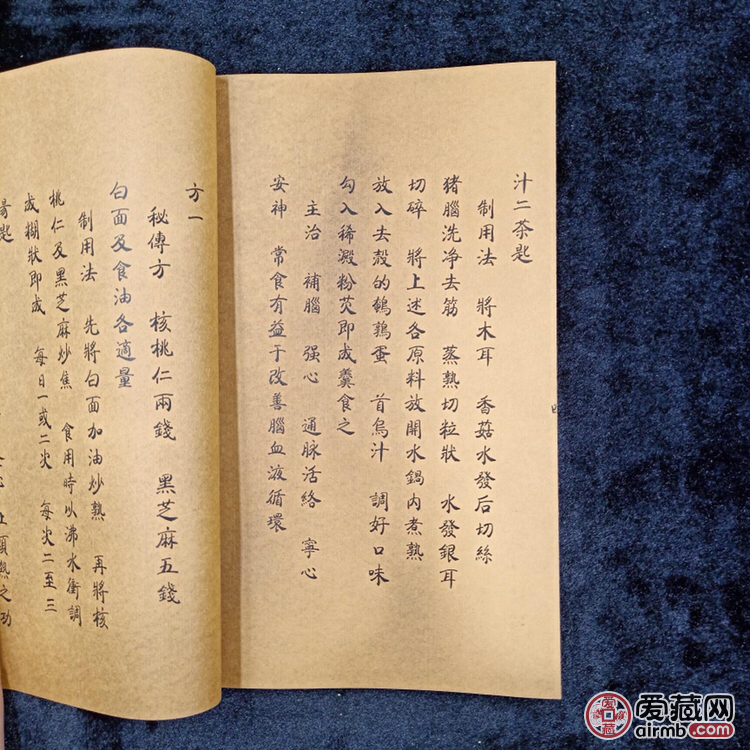 汁二茶匙
制用法 將木耳 香菇水發后切絲
猪腦洗净去筋 蒸熟切粒狀 水發銀耳
切碎 將上述各原料放開水鍋内煮熟
放入去殻的鵪鶉蛋 首烏汁 調好口味
勾入稀澱粉芡即成羹食之
主治 補腦 强心 通脉活絡 寧心
安神 常食有益于改善腦血液循環
方一
秘傳方 核桃仁兩錢 黑芝麻五錢
白面及食油各適量
制用法 先將白面加油炒熟 再將核
桃仁及黑芝麻炒焦 食用時以沸水衝調
成糊狀即成 每日一或二次 每次二至三
湯匙
之功
爱藏网
airmb.com